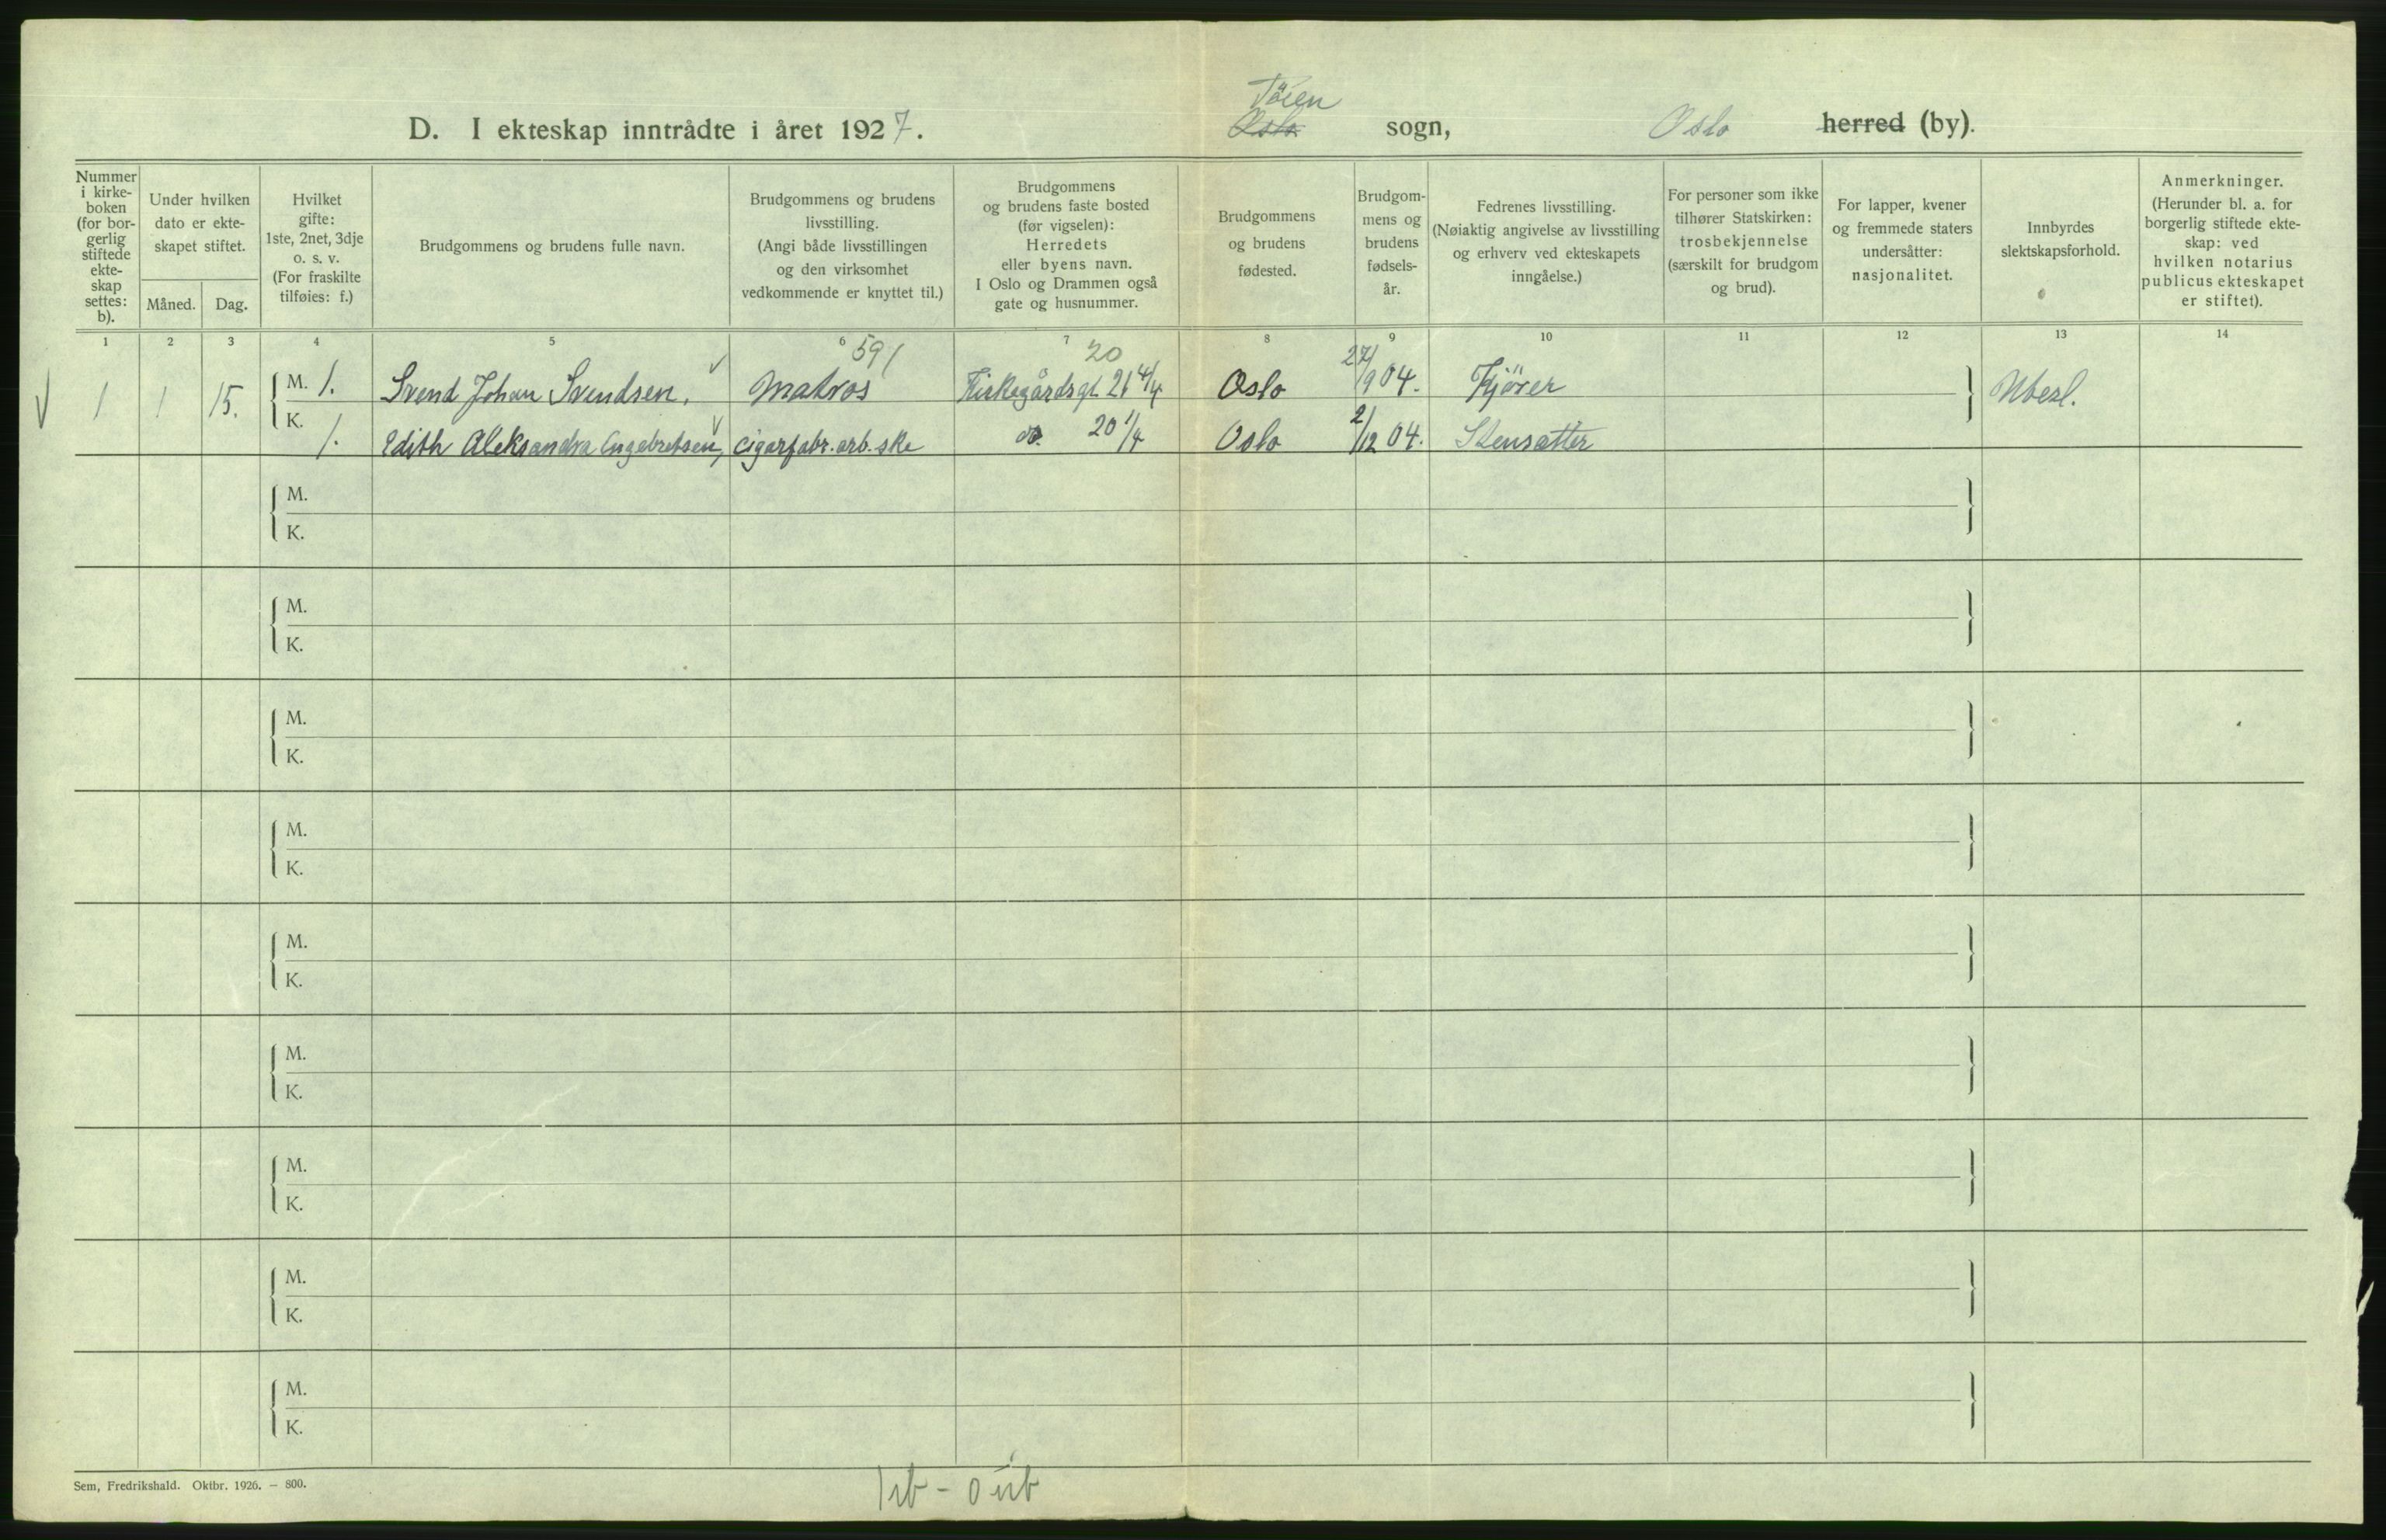 Töien
D. I ekteskap inntrådte i året 1927. Oslo sogn, Oslo herred (by).
Nummer i kirke- boken (for bor- gerlig stiftede ekte- skap settes: b).
Under hvilken dato er ekte- skapet stiftet.
Måned. Dag.
Hvilket gifte: 1ste, 2net, 3dje o. s. v. (For fraskilte tilføies: f.)
Brudgommens og brudens fulle navn.
Brudgommens og brudens livsstilling. (Angi både livsstillingen og den virksomhet vedkommende er knyttet til.)
Brudgommens og brudens faste bosted (før vigselen): Herredets eller byens navn. I Oslo og Drammen også gate og husnummer.
Brudgommens og brudens fødested.
Brudgom- mens og brudens fødsels- år.
Fedrenes livsstilling. (Nøiaktig angivelse av livsstilling og erhverv ved ekteskapets inngåelse.)
For personer som ikke tilhører Statskirken: trosbekjennelse (særskilt for brudgom og brud).
For lapper, kvener og fremmede staters undersåtter: nasjonalitet.
Innbyrdes slektskapsforhold.
Anmerkninger. (Herunder bl. a. for borgerlig stiftede ekte- skap: ved hvilken notarius publicus ekteskapet er stiftet).
1 2 3 4 5 6 7 8 9 10 11 12 13 14
591 20
1 1 15. M. 1. Svend Johan Svendsen. Matros Kirkegårdsgt 21 4/4 Oslo 27/9 04. Kjörer Ubesl.
K. 1. Edith Aleksandra Engebretsen, Cigarfabr. arb. ske do. 20 1/4 Oslo 2/12 04. Stensætter
M.
K.
M.
K.
M.
K.
M.
K.
M.
K.
M.
K.
M.
K.
M.
K.
M.
K.
Sem, Fredrikshald. Oktbr. 1926. — 800.